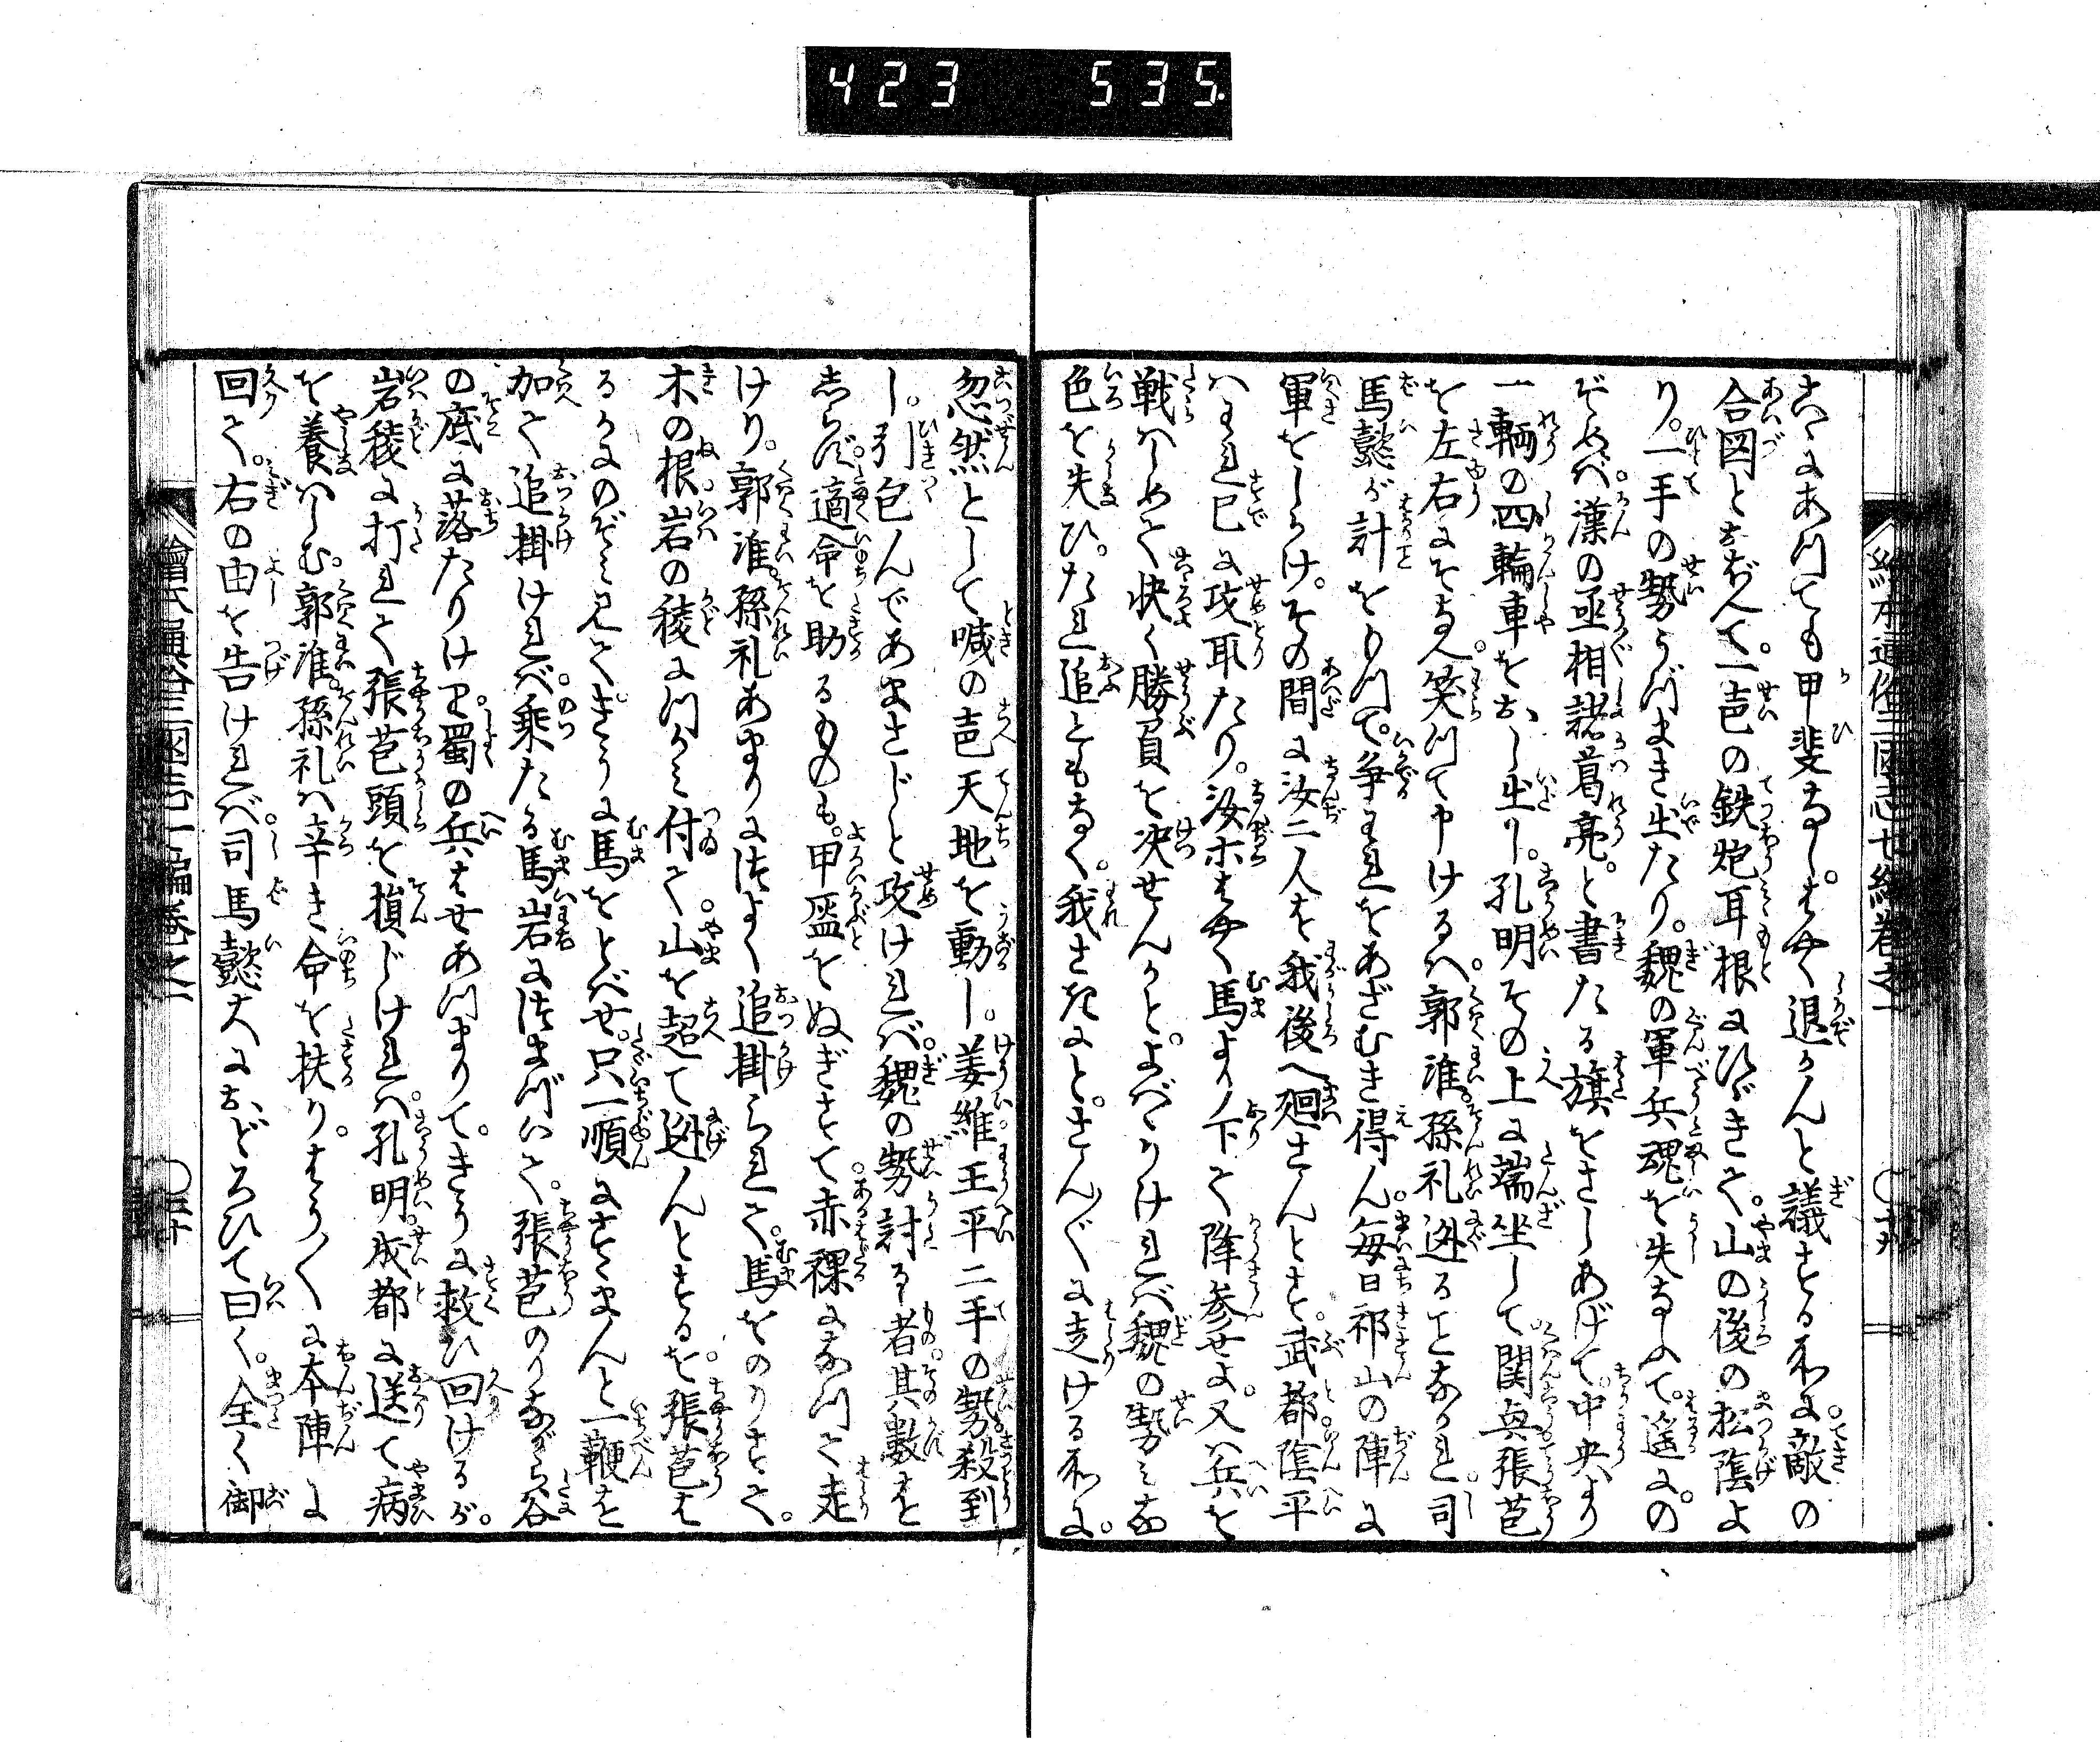 423 535.
繪本通俗三国志七編巻之一
○十九
こゝにあつても甲斐なし。はやく退かんと議する所に。敵の
合図とおぼえて。一声の鉄炮耳根にひゞきて。山の後の松陰よ
り。一手の勢うづまき出たり。魏の軍兵魂を失なふて。遥にの
ぞめば。漢の丞相諸葛亮。と書たる旗をさしあげて。中央より
一輌の四輪車をおし出し。孔明その上に端坐して。関興張苞
を左右にそなへ。笑つて申けるハ。郭淮孫礼迯ることなかれ。司
馬懿が計をもつて。争われをあざむき得ん。毎日祁山の陣に
軍をしかけ。その間に汝二人を我後へ廻さんとす。武都陰平
ハすでに攻取たり。汝ホはやく馬より下て降参せよ。又ハ兵を
戦ハしめて快く勝負を決せんかと。よばゝりけれバ魏の勢ミな
色を失ひ。たれ追ともなく。我さきにと。さん〴〵に走ける所に。
忽然として喊の声天地を動し。姜維王平二手の勢殺到
し。引包んであまさじと攻けれバ。魏の勢討るゝ者其数を
しらず。適命を助るものも。甲盔をぬぎすて赤裸になつて走
けり。郭淮孫礼あまりにつよく追掛られて。馬をのりすて。
木の根岩の稜につかミ付て。山を超て迯んとするを。張苞は
るかにのぞミ見て。きうに馬をとバせ。只一順にすゝまんと一鞭を
加て追掛けれバ。乗たる馬岩につまづいて。張苞のりながら谷
の底に落たりけり。蜀の兵はせあつまりて。きうに救ひ回けるが。
岩稜に打れて張苞頭を損じけれハ。孔明成都に送て病
を養ハしむ。郭淮孫礼ハ辛き命を扶り。はう〳〵に本陣に
回て。右の由を告けれバ。司馬懿大におどろひて曰く。全く御
繪本通俗三國志七編巻之一
○二十